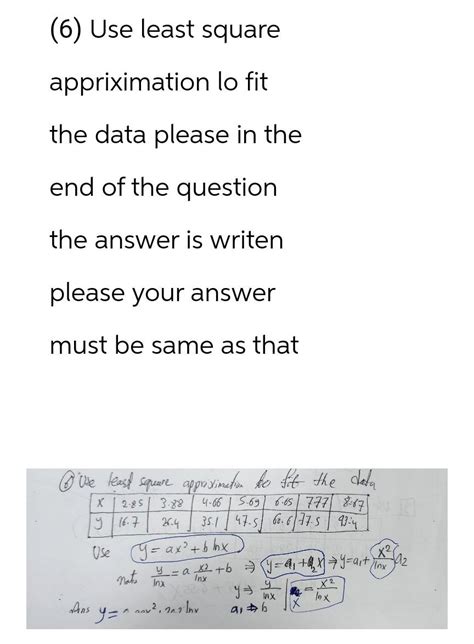 (6) Use least square
appriximation lo fit
the data please in the
end of the question
the answer is writen
please your answer
must be same as that
⑥ Use least square approximation to fit the data
x | 2.85 | 3.88 | 4.66 | 5.69 | 6.65 | 7.77 | 8.67
y | 16.7 | 26.4 | 35.1 | 47.5 | 60.6 | 77.5 | 93.4
Use y = ax² + b lnx
y/lnx = a x²/lnx + b ⇒ y = a₁ + a₂x ⇒ y = a₁ + x²/lnx a₂
y ⇒ y/lnx | x = x²/lnx
Ans y = lnx a₁ ⇒ b